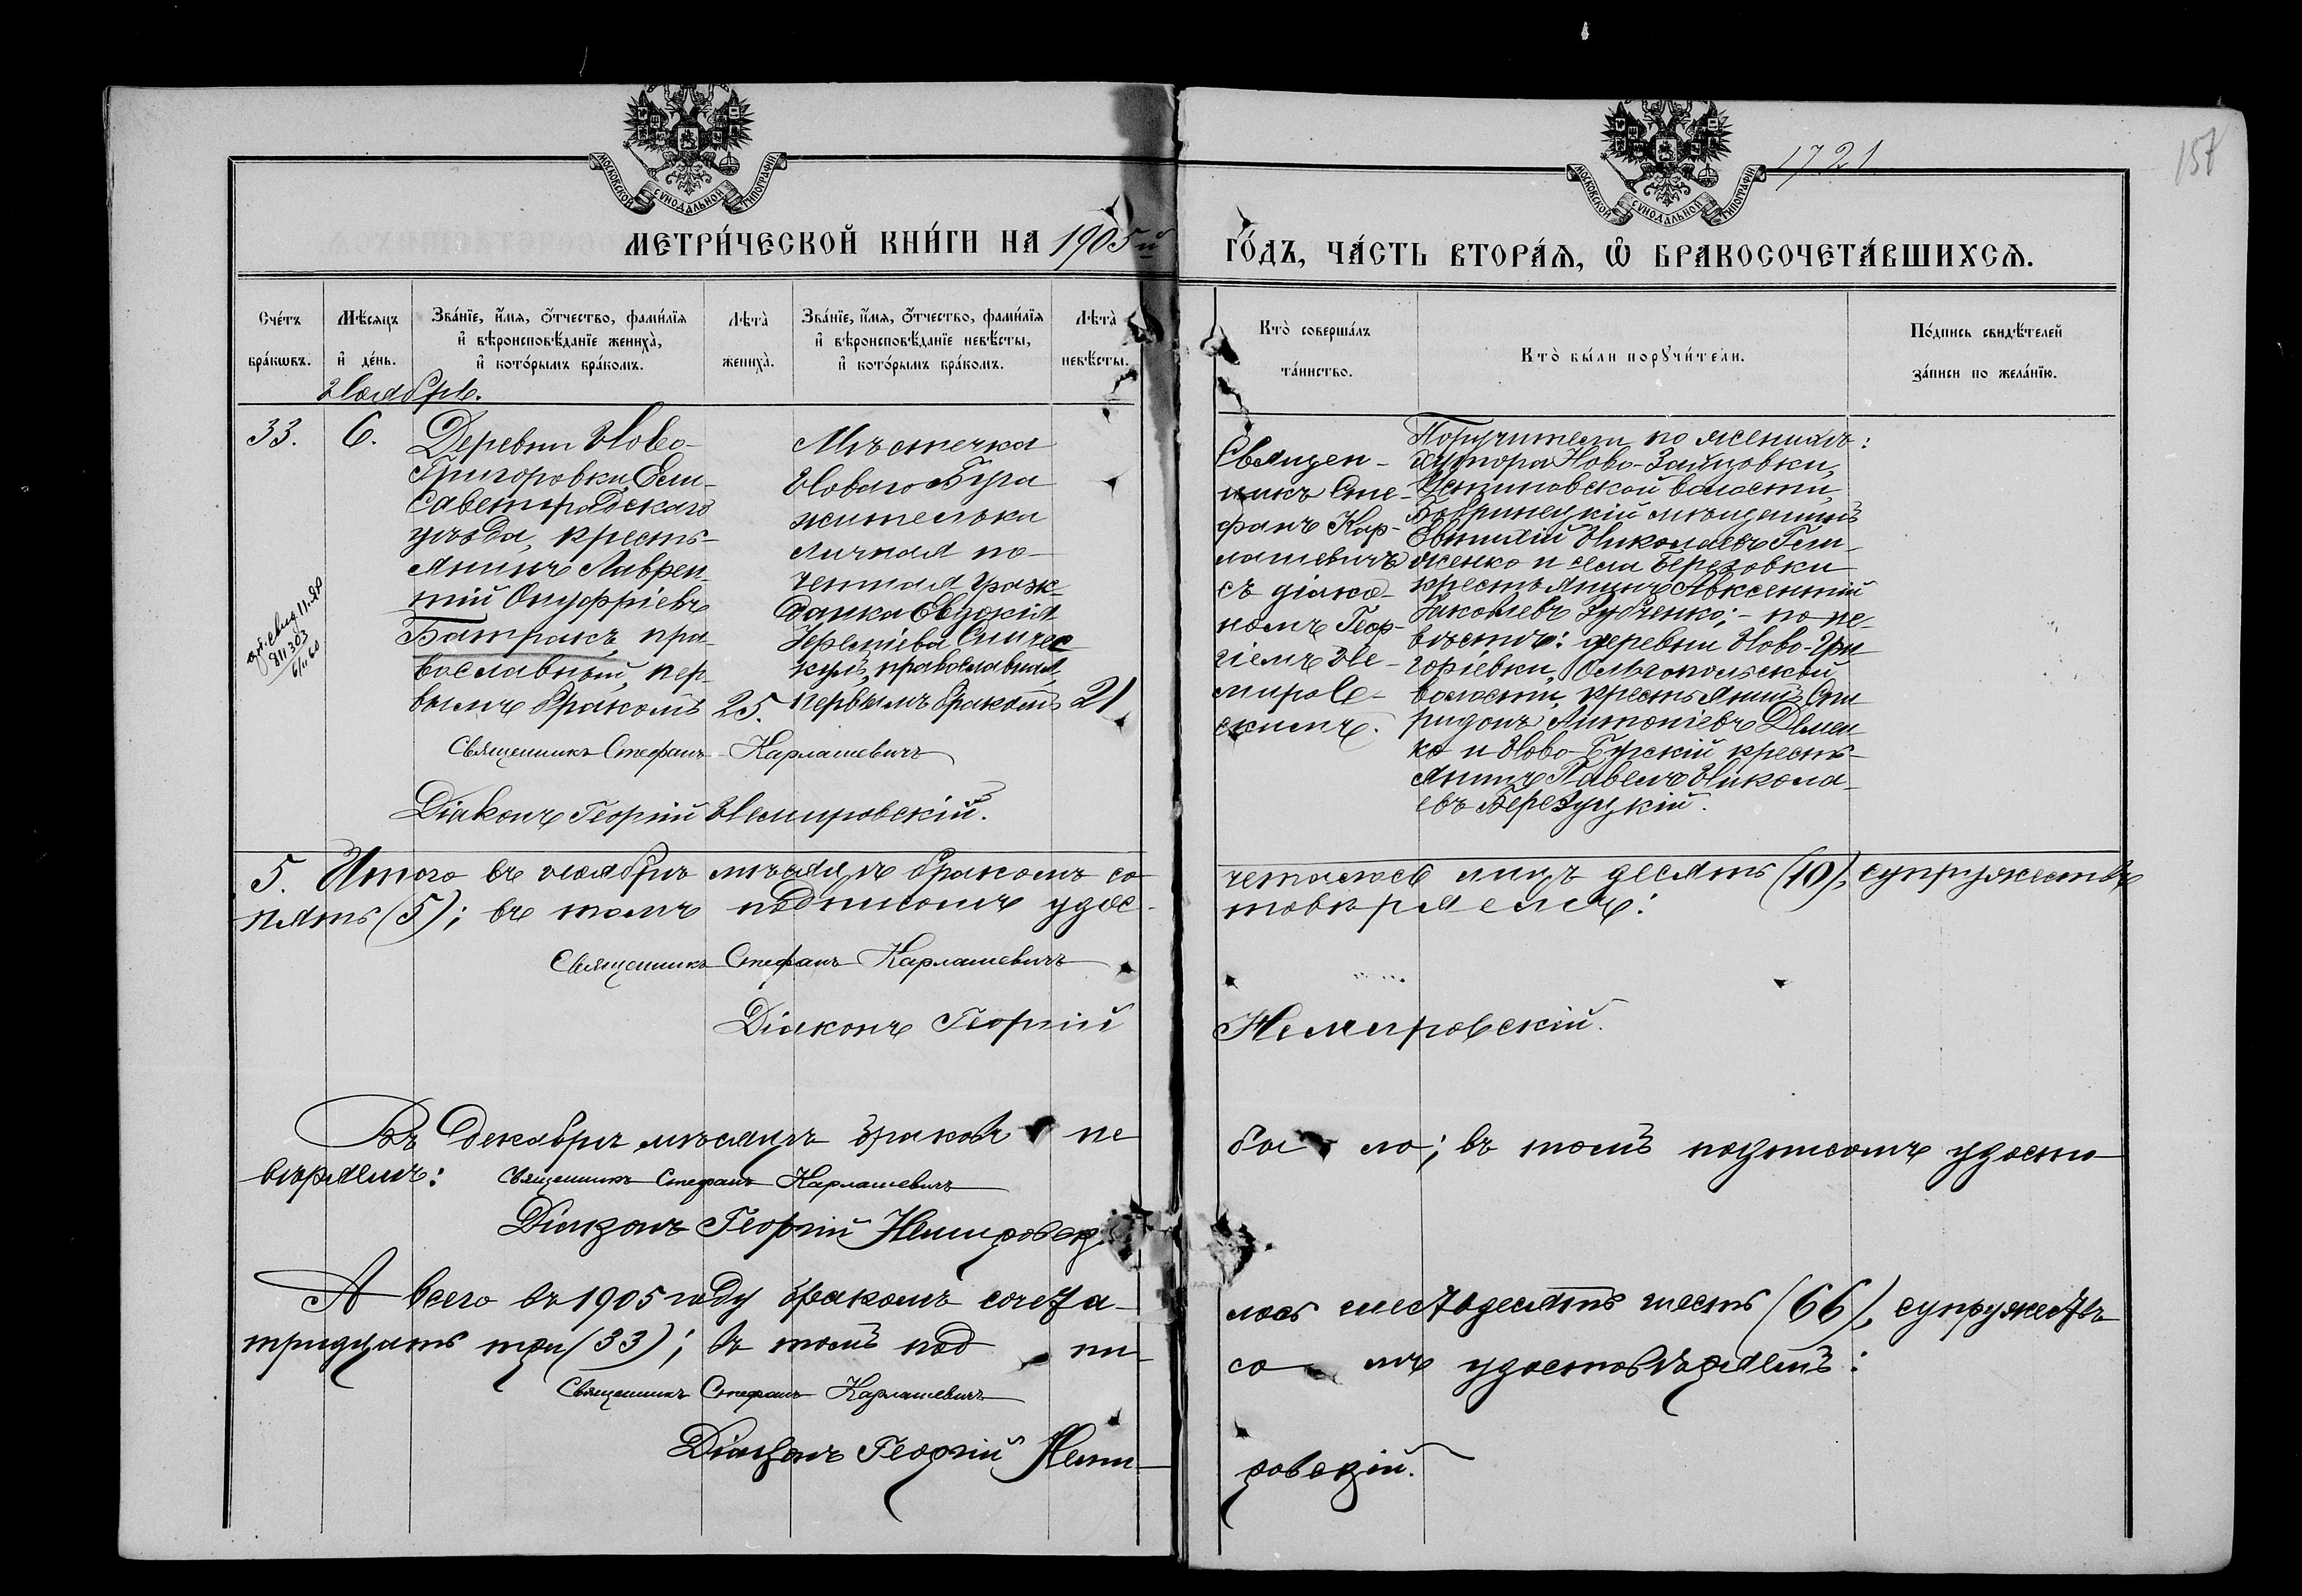 1721
157
МОСКОВСКОЙ СѴНОДАЛЬНОЙ ТИПОГРАФІИ
МОСКОВСКОЙ СѴНОДАЛЬНОЙ ТИПОГРАФІИ
МЕТРИ́ЧЕСКОЙ КНИ́ГИ НА 1905й
ГО́ДЪ, ЧА́СТЬ ВТОРА́Ѧ, Ѡ҆ БРАКОСОЧЕТА́ВШИХСѦ.
Сче́тъ бра́кѡвъ.
Мѣ́сяцъ и҆ де́нь.
Зва́нїе, и҆́мя, ѻ҆́тчество, фами́лїя
и҆ вѣроисповѣ́данїе жениха̀,
и҆ кото́рымъ бра́комъ.
Лѣта̀ жениха̀.
Зва́нїе, и҆́мя, ѻ҆́тчество, фами́лїя
и҆ вѣроисповѣ́данїе невѣ́сты,
и҆ кото́рымъ бра́комъ.
Лѣта̀ невѣ́сты.
Кто̀ соверша́лъ
та́инство.
Кто̀ бы́ли порꙋчи́тели.
По́дпись свидѣ́телей
за́писи по жела́нїю.
Ноябрь.
33.
6.
Деревни Ново-
Григоровки, Ели-
саветградскаго
уѣзда, кресть-
янинъ Лаврен-
тій Онуфріевъ
Батракъ, пра-
вославный, пер-
вымъ бракомъ
25.
Мѣстечка
Новаго Буга
жителька
личная по-
четная граж-
данка Евдокія
православная,
первымъ бракомъ
21
Священ-
никъ Сте-
фанъ Кар-
лашевичъ
съ діако-
номъ Геор-
гіемъ Не-
миров-
скимъ.
Поручители по женихѣ:
хутора Ново-Зайцовки,
Устиновской волости,
Бобринецкій мѣщанинъ
Евтихій Николаевъ
женко и села Березовки
крестьянинъ Авксентій
Іаковлевъ Зубченко; - по не-
вѣстѣ: деревни Ново-Гри-
горіевки, Ольгопольской
волости, крестьянинъ Спи-
ридонъ Антоніевъ Демен-
ко и Ново-Бугскій кресть-
янинъ Павелъ Никола-
евъ Березуцкій.
811303
Священникъ Стефанъ Карлашевичъ
Діаконъ Георгій Немировскій.
5. Итого въ ноябрѣ мѣсяцѣ бракомъ со-
четалось лицъ десять (10), супружествъ
пять (5); въ томъ подписомъ удос-
товѣряемъ:
Священникъ Стефанъ Карлашевичъ
Діаконъ Георгій Немировскій.
Въ Декабрѣ мѣсяцѣ браковъ не
бы ло; въ томъ подписомъ удосто-
вѣряемъ: Священникъ Стефанъ Карлашевичъ
Діаконъ Георгій Немировск
А всего въ 1905 году бракомъ сочета-
лось шестьдесятъ шесть (66), супружествъ
тридцать три (33); въ томъ под пи-
со мъ удостовѣряемъ:
Священникъ Стефанъ Карлашевичъ
Діаконъ Георгій Неми-
ровскій.